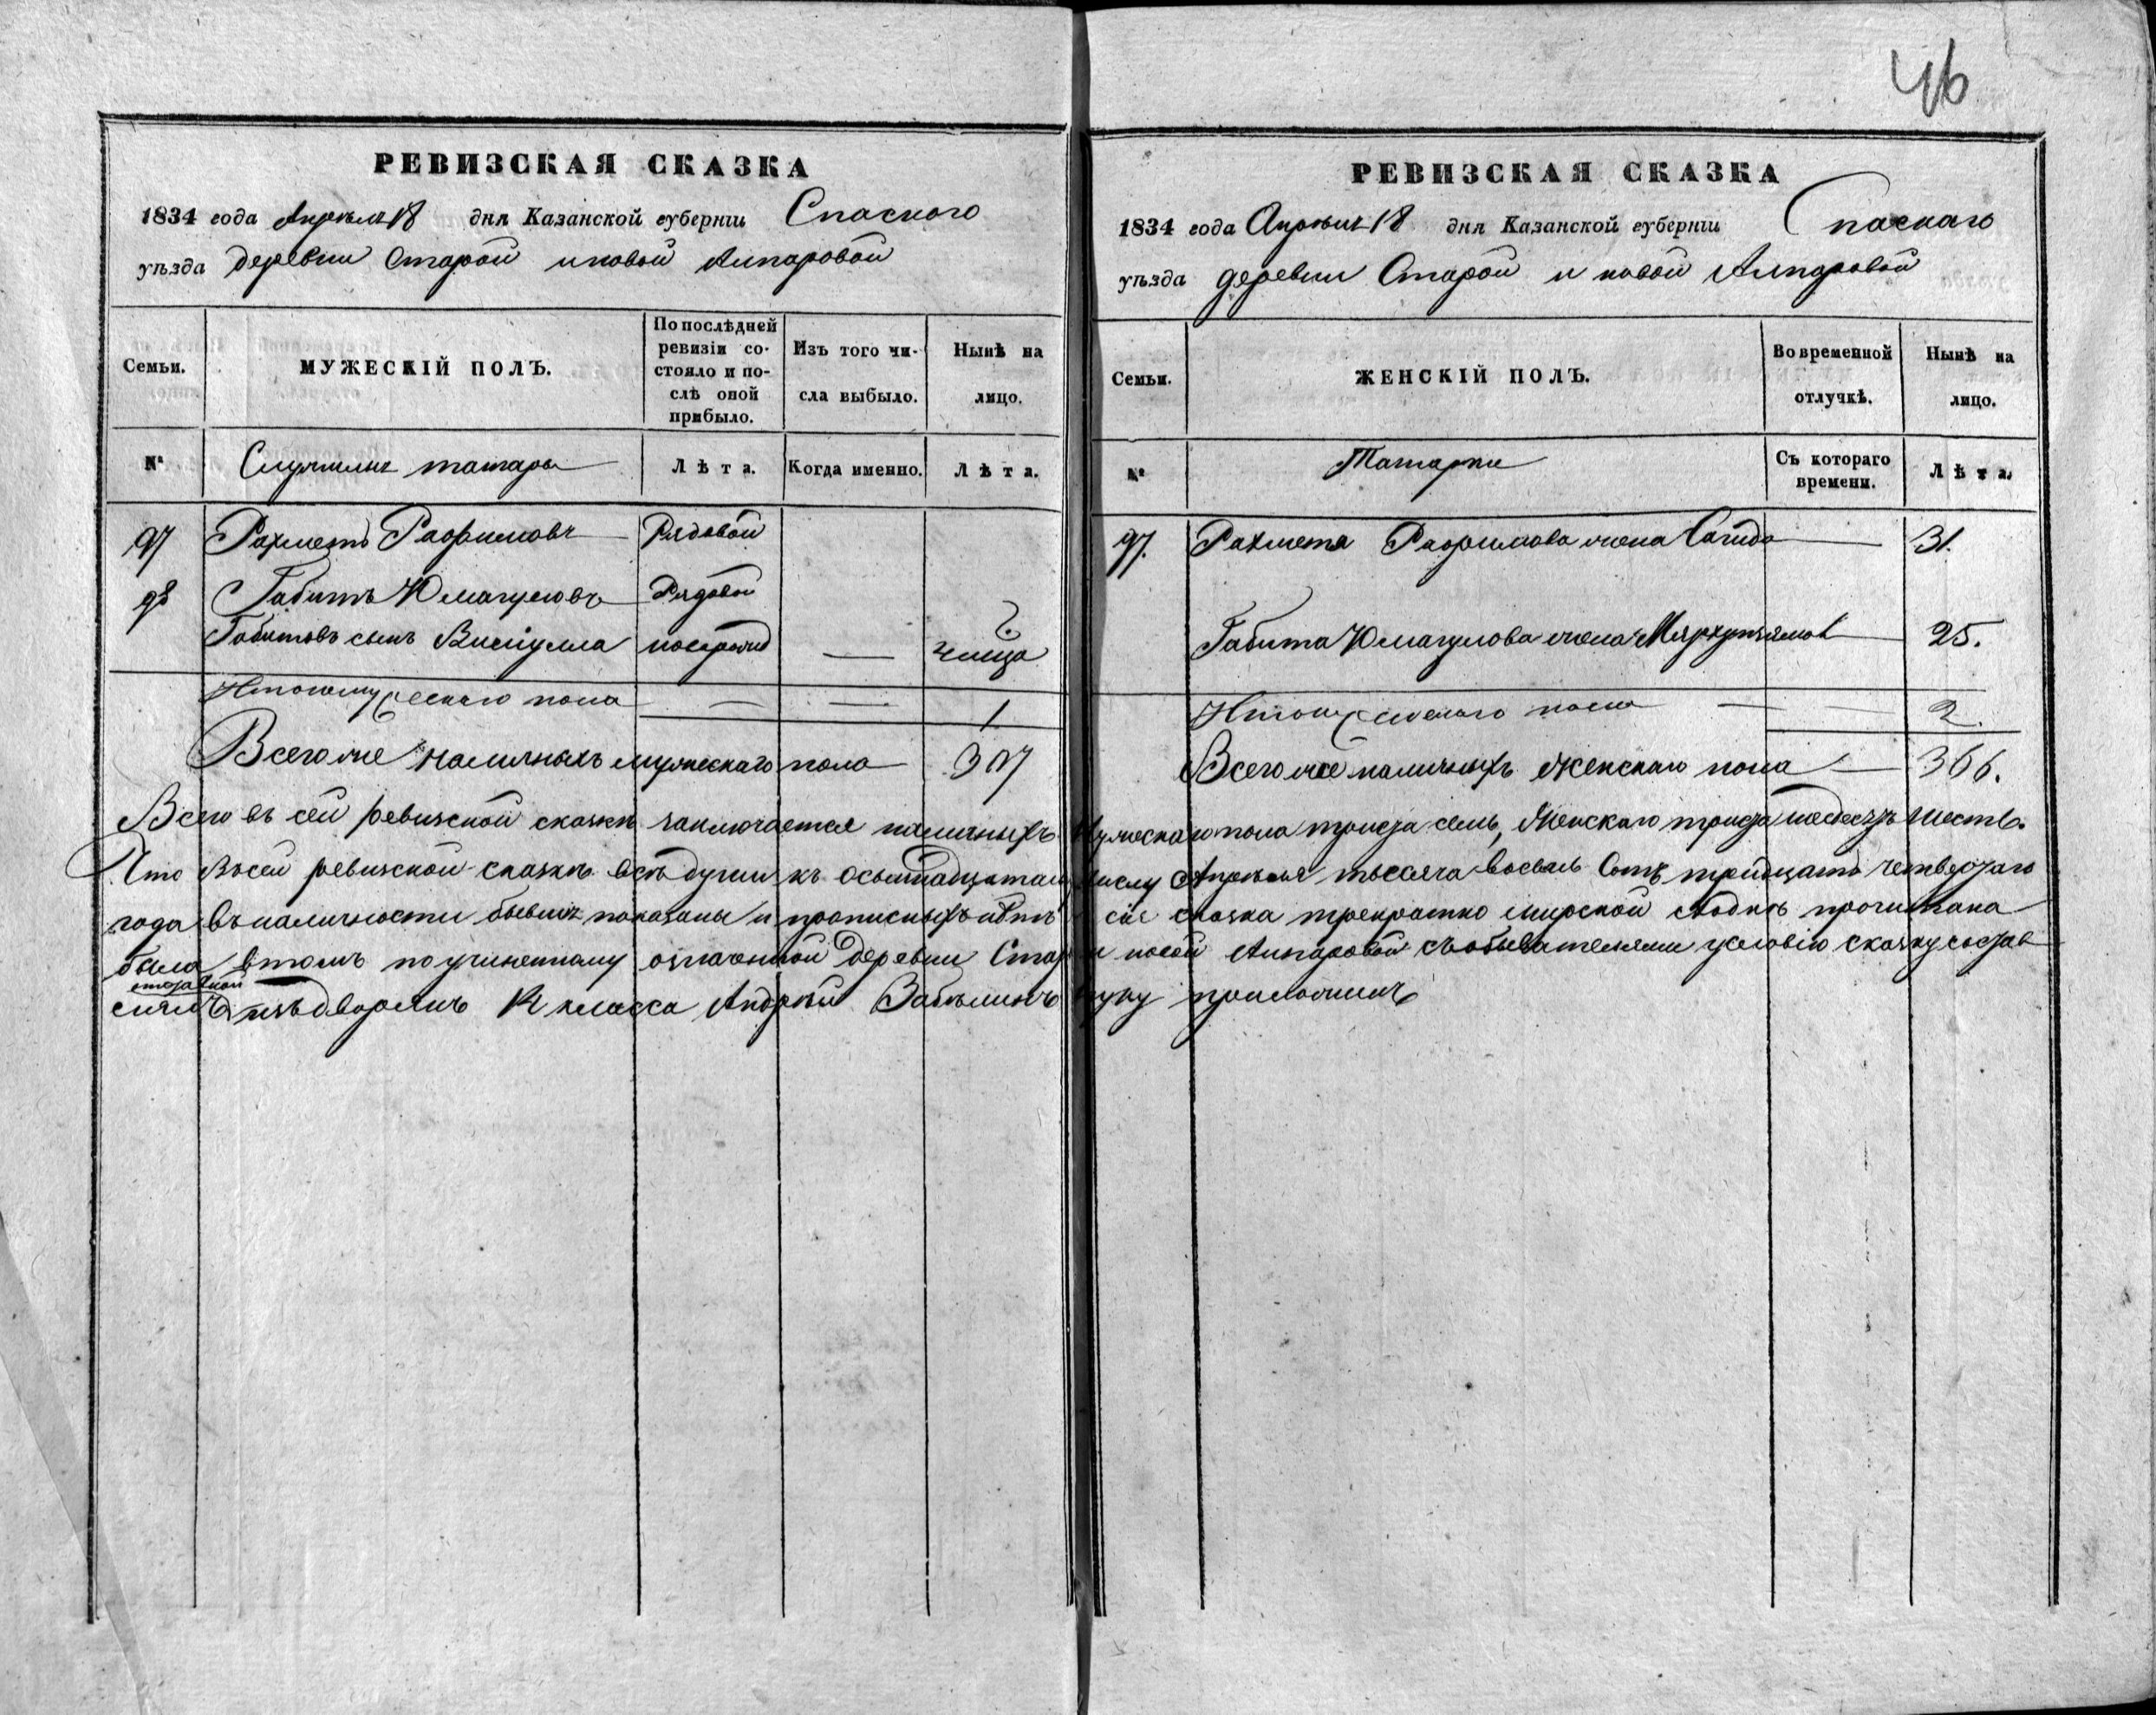 46
РЕВИЗСКАЯ СКАЗКА
1834 года Апреля 18 дня Казанской губерніи Спаского
уѣзда деревни Старой и новой Алпаровой
Семьи.
МУЖЕСКІЙ ПОЛЪ.
По послѣдней ревизіи состояло и послѣ оной прибыло.
Изъ того числа выбыло.
Нынѣ на лицо.
№ Служилые татары Лѣта. Когда именно. Лѣта.
97 Рахметъ Рафиковъ Рядовой
98 Габитъ Юмагуловъ Рядовой
Габитовъ сынъ
Итого мужескаго пола — — 1
Всего же наличныхъ мужескаго пола 307
РЕВИЗСКАЯ СКАЗКА
1834 года Апреля 18 дня Казанской губерніи Спаскаго
уѣзда деревни Старой и новой Алпаровой
Семьи.
ЖЕНСКІЙ ПОЛЪ.
Во временной отлучкѣ.
Нынѣ на лицо.
№ Татарки Съ котораго времени. Лѣта.
97. Рахметя жена Сагида — 31.
Габита Юмагулова жена — 25.
Итого женскаго пола — — 2.
Всего же наличныхъ женскаго пола — 366.
Всего въ сей ревизской сказкѣ заключается наличныхъ Мужескаго пола триста семь, Женскаго триста шестьдесятъ шесть.
Что Въ сей ревизской сказкѣ всѣ души къ осьмнадцатому числу Апреля тысяча восемь Сотъ тридцать четвертаго
года въ наличности бывшие показаны и прописныхъ нѣтъ и сiя сказка трекратно мирской сходкѣ прочитана
была въ томъ по учиненному означенной Деревни Старой и новой Алпаровой съ обывателями условiю сказку состав
изъ дворянъ класса Андрей руку приложилъ